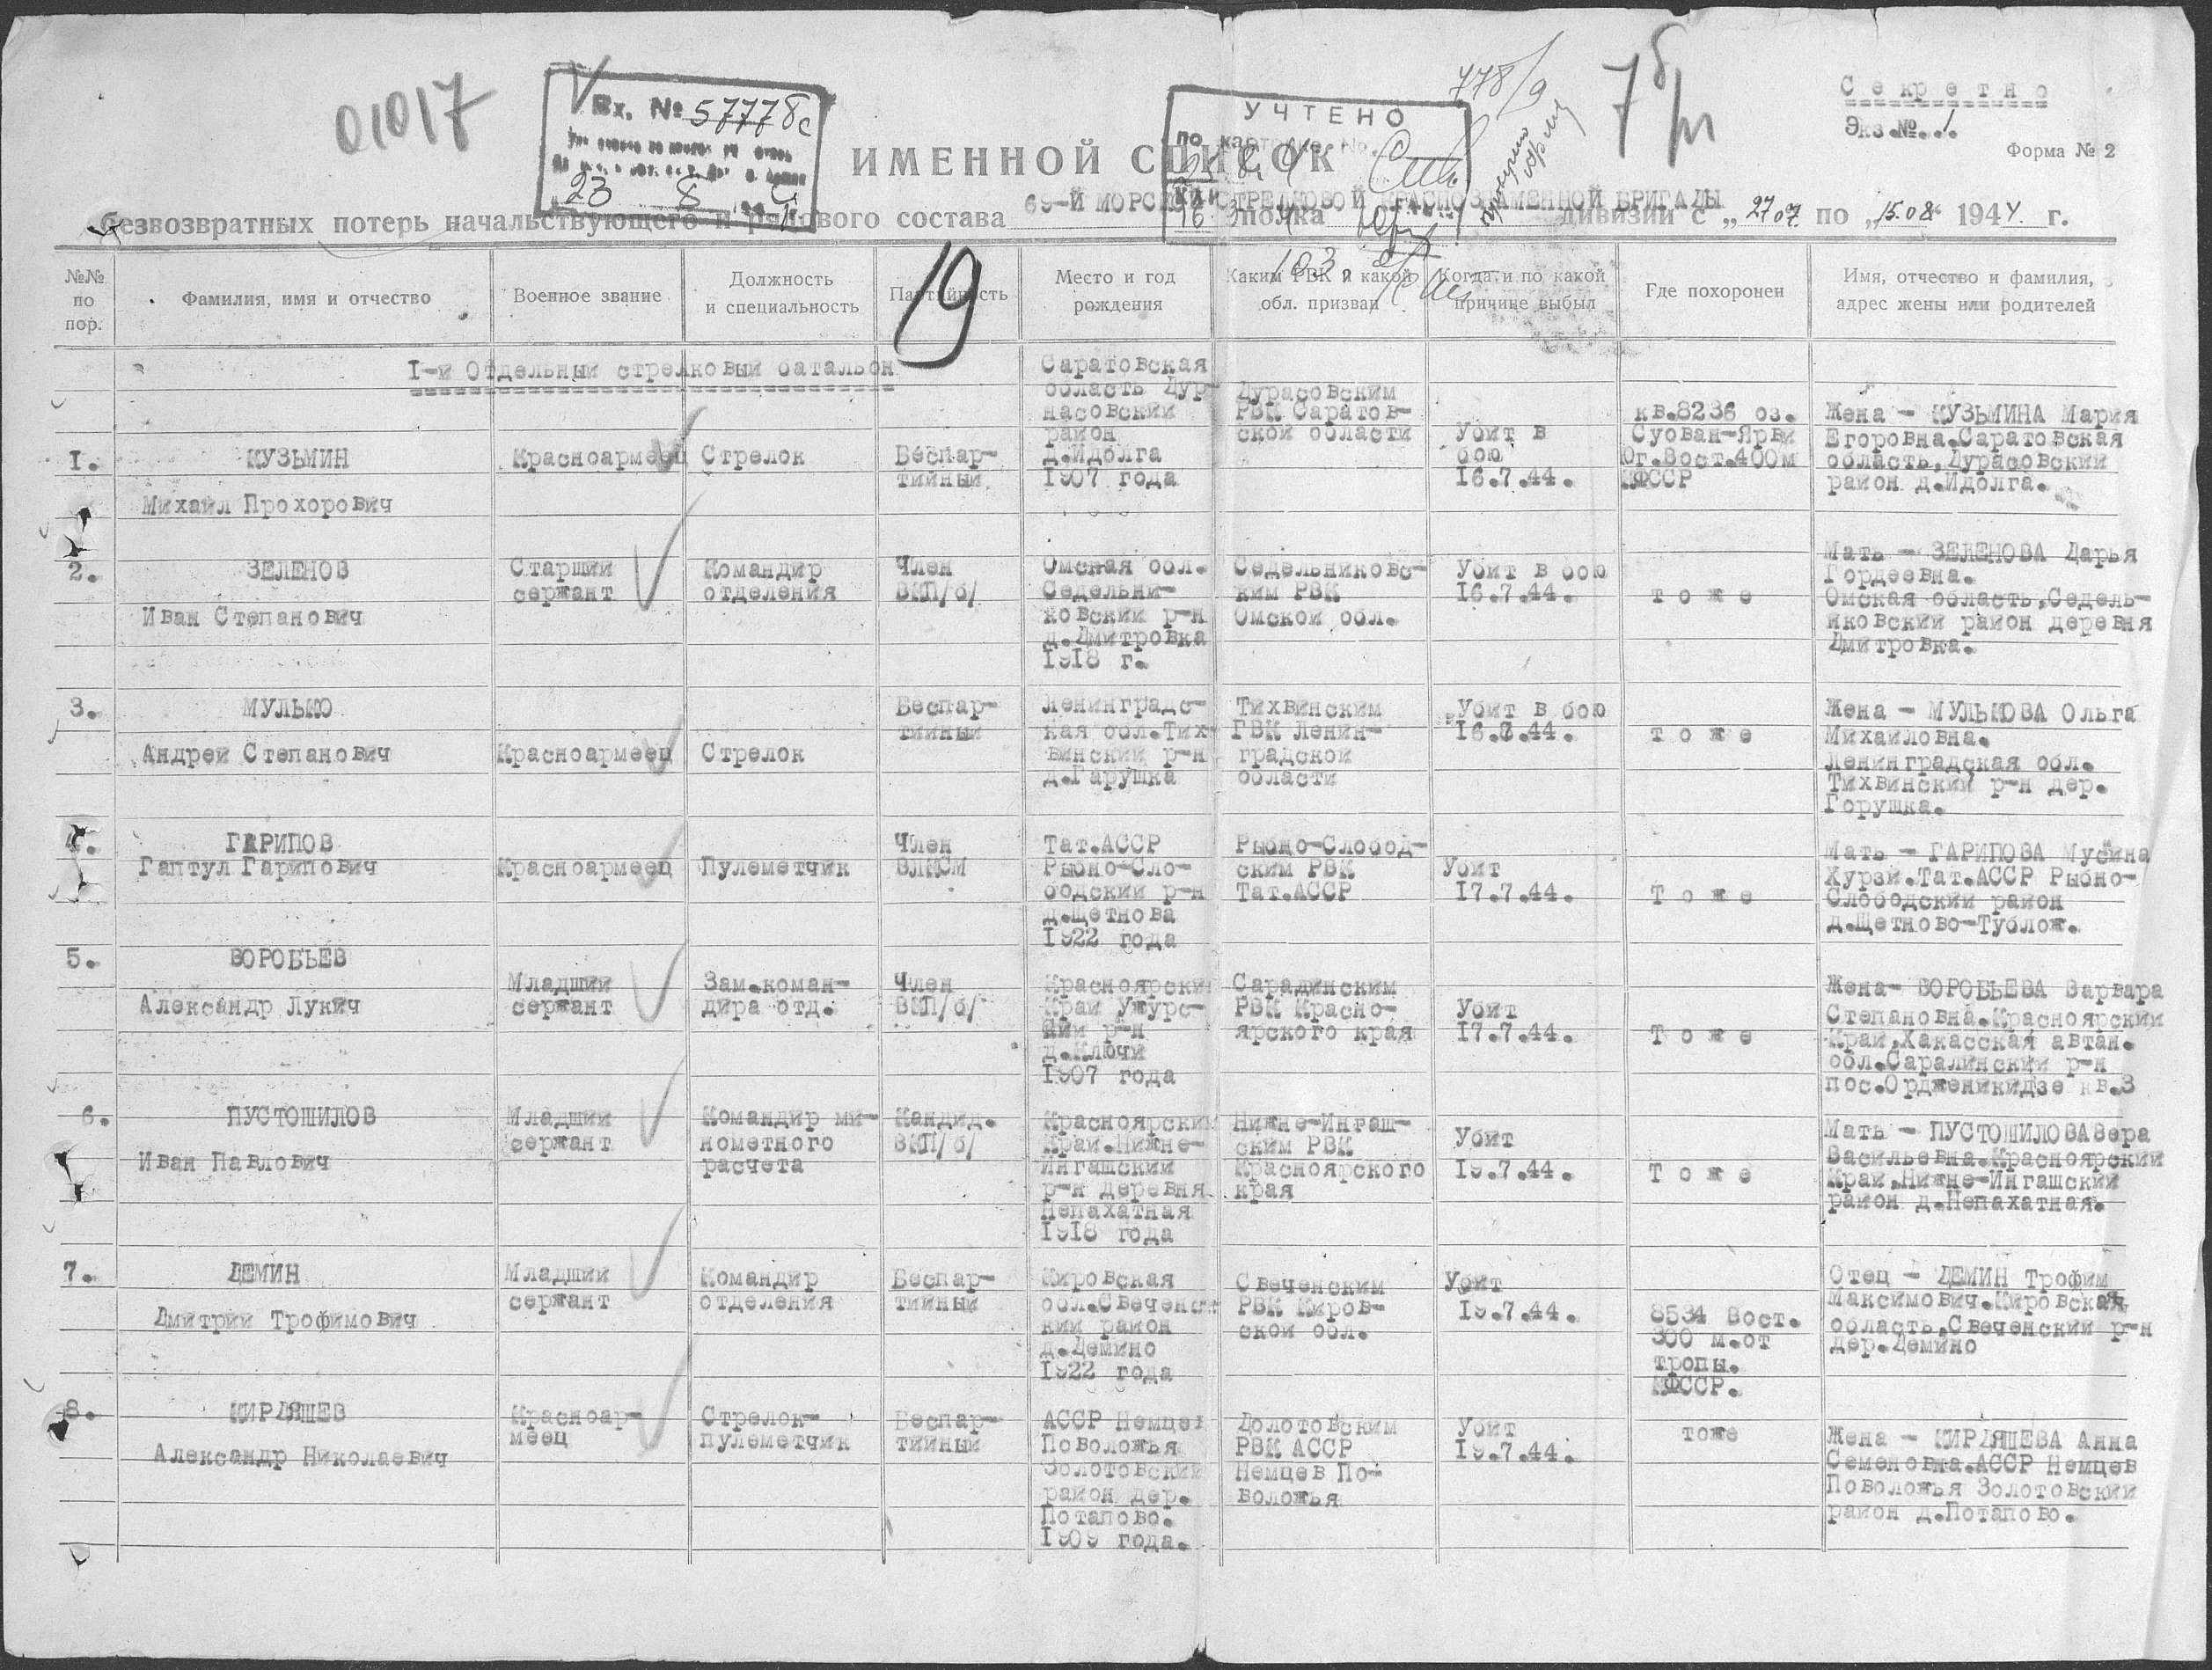 01017
Вх. № 57778с
23 8
УЧТЕНО
по картотеке №
16
778/9
Секретно
Экз.№.1.
Форма № 2
ИМЕННОЙ СПИСОК
69-Й МОРСКОЙ СТРЕЛКОВОЙ КРАСНОЗНАМЕННОЙ БРИГАДЫ
безвозвратных потерь начальствующего и рядового состава полка дивизии с „27 07 по „15.08" 1944 г.
19
№№ по пор.
Фамилия, имя и отчество
Военное звание
Должность и специальность
Партийность
Место и год рождения
Каким РВК и какой обл. призван
Когда и по какой причине выбыл
Где похоронен
Имя, отчество и фамилия, адрес жены или родителей
I-й Отдельный стрелковый батальон
I.
КУЗЬМИН
Михаил Прохорович
Красноармеец
Стрелок
Беспар-
тийный
Саратовская
область Дур-
насовский
район
д.Идолга
1907 года
Дурасовским
РВК Саратов-
ской области
Убит в
бою
16.7.44.
кв.8236 оз.
Суован-Ярви
Юг.Вост.400м
КФССР
Жена - КУЗЬМИНА Мария
Егоровна.Саратовская
область,Дурасовский
район д.Идолга.
2.
ЗЕЛЕНОВ
Иван Степанович
Старший
сержант
Командир
отделения
Член
ВКП/б/
Омская обл.
Седельни-
ковский р-н
д.Дмитровка
1918 г.
Седельниковс-
ким РВК
Омской обл.
Убит в бою
16.7.44.
тоже
Мать - ЗЕЛЕНОВА Дарья
Гордеевна.
Омская область,Седель-
никовский район деревня
Дмитровка.
3.
МУЛЬКО
Андрей Степанович
Красноармеец
Стрелок
Беспар-
тийный
Ленинградс-
кая обл.Тих-
винский р-н
д.Гарушка
Тихвинским
ГВК Ленин-
градской
области
Убит в бою
16.7.44.
тоже
Жена - МУЛЬКОВА Ольга
Михайловна.
Ленинградская обл.
Тихвинский р-н дер.
Горушка.
4.
ГАРИПОВ
Гаптул Гарипович
Красноармеец
Пулеметчик
Член
ВЛКСМ
Тат.АССР
Рыбно-Сло-
бодский р-н
д.Щетнова
1922 года
Рыбно-Слобод-
ским РВК
Тат.АССР
Убит
17.7.44.
Тоже
Мать - ГАРИПОВА Мусина
Хурзи.Тат.АССР Рыбно-
Слободский район
д.Щетново-Тублож.
5.
ВОРОБЬЕВ
Александр Лукич
Младший
сержант
Зам.коман-
дира отд.
Член
ВКП/б/
Красноярский
Край Ужурс-
кий р-н
д.Ключи
1907 года
Сарадинским
РВК Красно-
ярского края
Убит
17.7.44.
Тоже
Жена- ВОРОБЬЕВА Варвара
Степановна.Красноярский
Край,Хакасская автан.
обл.Саралинский р-н
пос.Орджeникидзе кв.3
6.
ПУСТОШИЛОВ
Иван Павлович
Младший
сержант
Командир ми-
нометного
расчета
Кандид.
ВКП/б/
Красноярский
Край.Нижне-
Ингашский
р-н деревня
Непахатная
1918 года
Нижне-Ингаш-
ским РВК
Красноярского
края
Убит
19.7.44.
Тоже
Мать - ПУСТОШИЛОВА Вера
Васильевна.Красноярский
Край,Нижне-Ингашский
район д.Непахатная.
7.
ДЕМИН
Дмитрий Трофимович
Младший
сержант
Командир
отделения
Беспар-
тийный
Кировская
обл.Свеченс-
кий район
д.Демино
1922 года
Свеченским
РВК Киров-
ской обл.
Убит
19.7.44.
8534 Вост.
300 м.от
тропы.
КФССР.
Отец - ДЕМИН Трофим
Максимович.Кировская
область,Свеченский р-н
дер.Демино
8.
КИРДЯШЕВ
Александр Николаевич
Красноар-
меец
Стрелок-
пулеметчик
Беспар-
тийный
АССР Немцев
Поволожья
Золотовский
район дер.
Потапово.
1909 года.
Долотовским
РВК АССР
Немцев По-
воложья
Убит
19.7.44.
тоже
Жена - КИРДЯШЕВА Анна
Семеновна.АССР Немцев
Поволожья Золотовский
район д.Потапово.